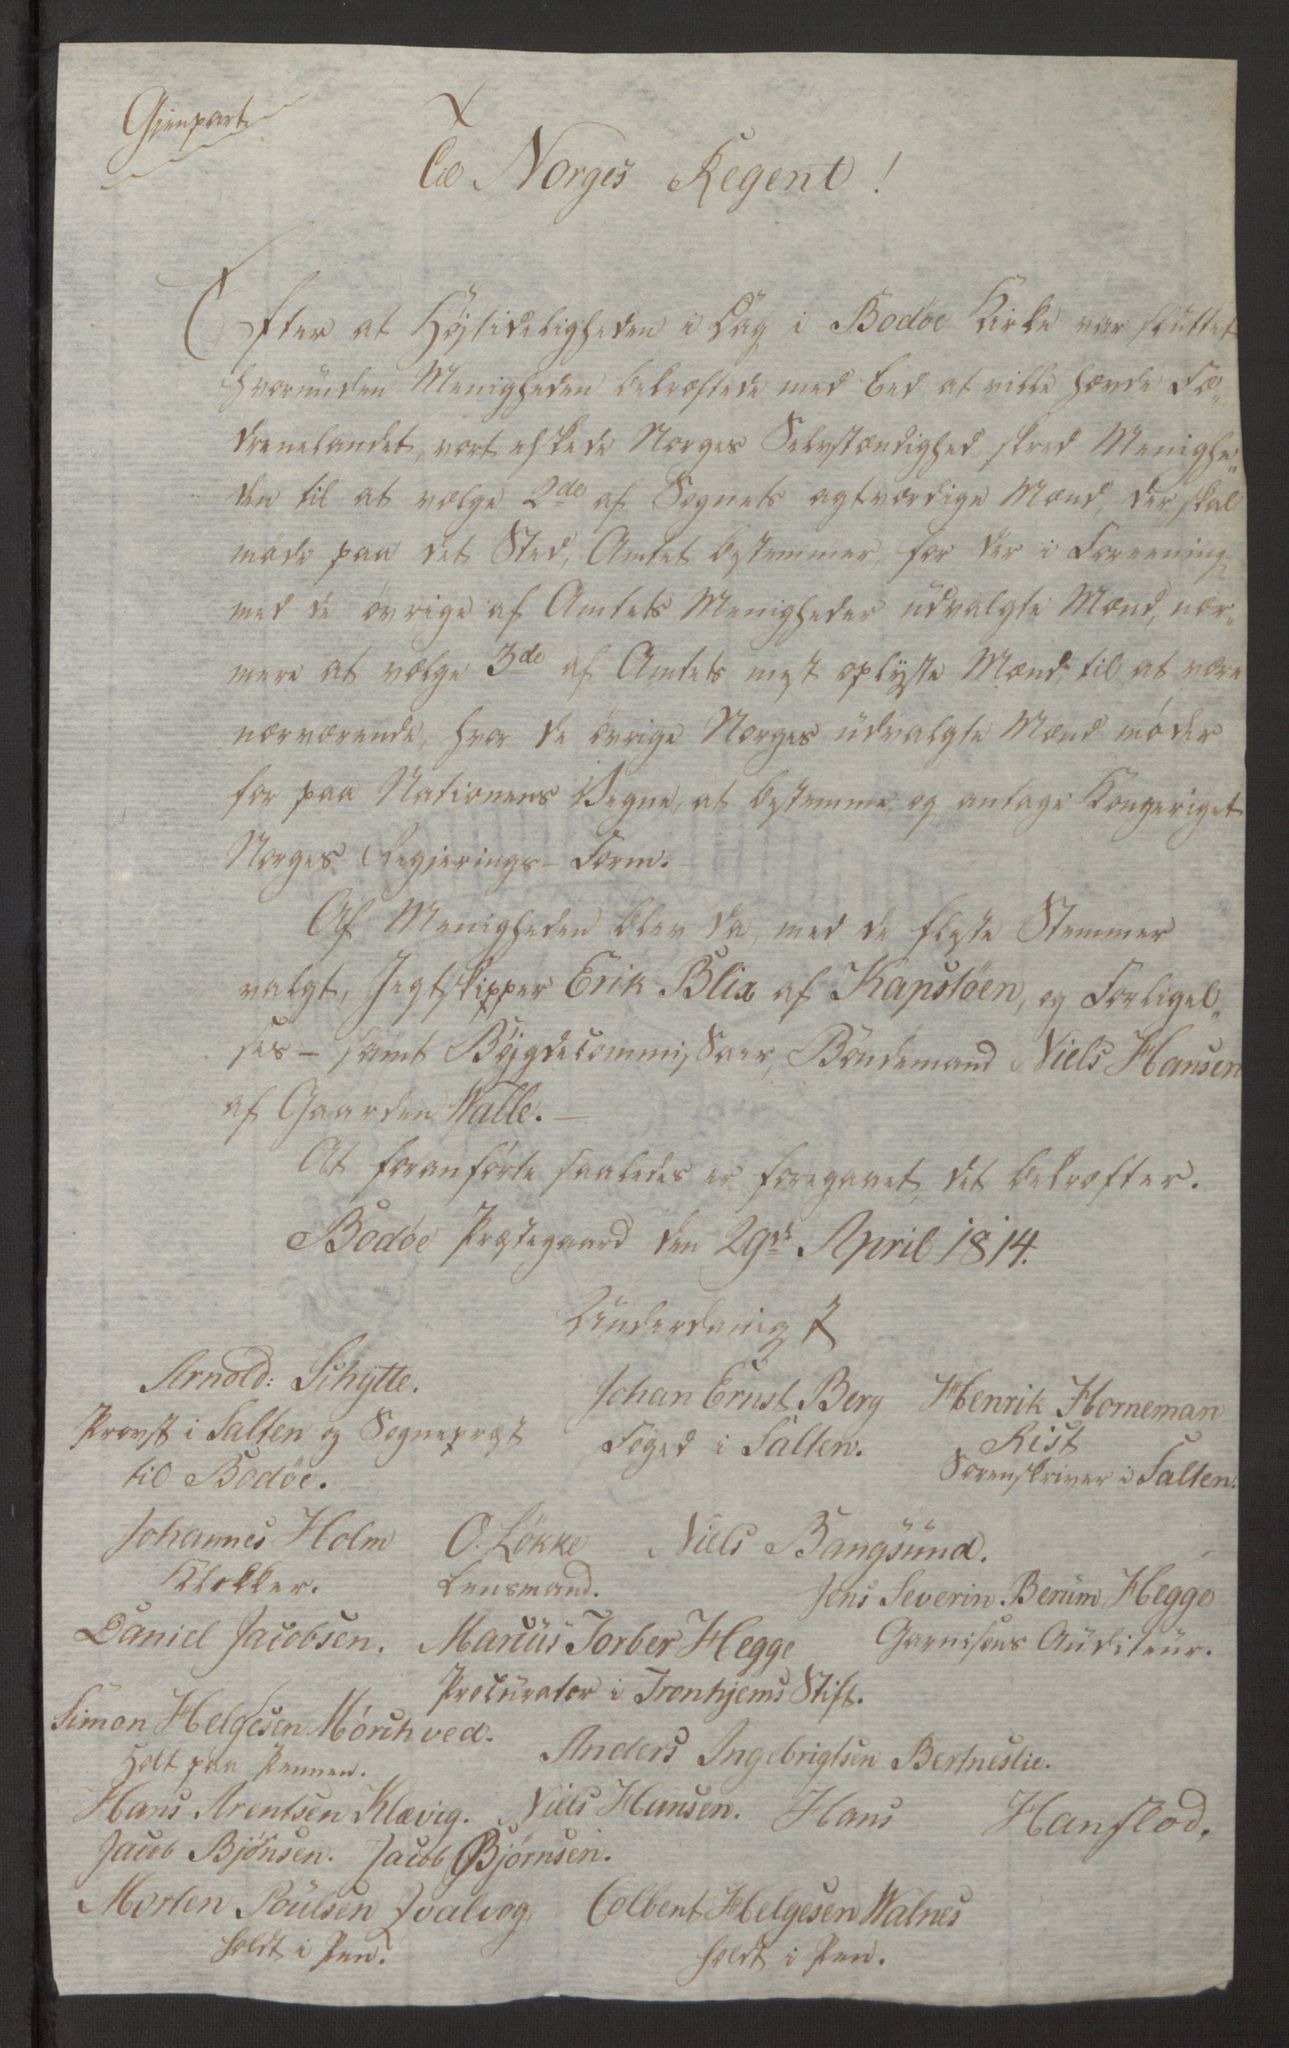 Gjenpart.
Til Norges Regent!
Efter at Højtideligheden i Dag i Bodøe Kirke var sluttet
hvorunden Menigheden bekræftede med Eed at ville hævde Fæ„
drenelandet, vort elskede Norges Selvstændighed skred Menighe„
den til at vælge 2de af Sognets agtværdige Mænd, der skal
møde paa det Sted, Amtet bestemmer, for der i Foreening
med de øvrige af Amtets Menigheder udvalgte Mænd, nær„
mere at vælge 3de af Amtets mest oplyste Mænd, til at være
nærværende, hvor de øvrige Norges udvalgte Mænd møder
for paa Nationens Vegne, at bestemme, og antage Kongeriget
Norges Regjerings-Form.-
Af Menigheden blev da, med de fleste Stemmer
valgt, Jegtskipper Erik Blix af Kapstøen, og Forligel„
ses- samt Bøjgdecommissær, Bondemand Niels Hansen
af Gaarden Walle.-
At foranførte saaledes er foregaaet, det bekræfter.
Bodøe Præstegaard den 29de April 1814.
Underdanigst
Arnold: Schytte. Johan Ernst Berg Henrik Horneman
Provst i Salten og Sognepræst Foged i Salten. Rist
til Bodøe. Sorenskriver i Salten.
Johannes Holm O. Løkke Niels Bangsund.
Klokker. Lensmand. Jens Severin Berum Hegge
Daniel Jacobsen. Marcus Torber Hegge Garnisons Auditeur.
Procurator i Tronhjems Stift.
Simon Helgesen Mørchved. Anders Ingebrigtsen Bertneslie.
Holt paa Pennen.
Hans Arentsen Klævig. Niels Hansen. Hans Hansflod.
Jacob Bjønsen. Jacob Bjørnsen.
Morten Poulsen Qvalvog Colbent Helgesen Walnes
holdt i Pen. holdt i Pen.